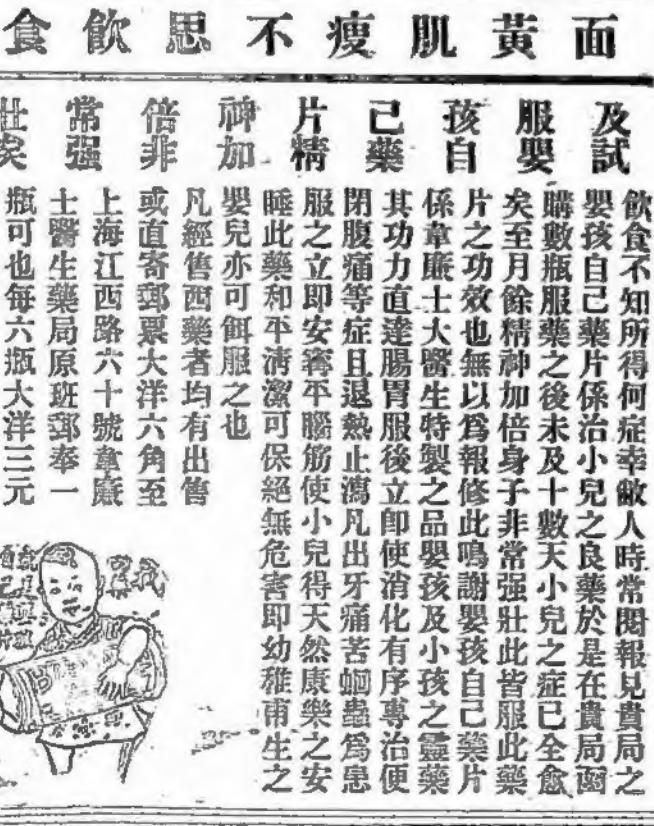 面黃肌瘦不思飲食
及試
服嬰
孩自
己藥
片精
神加
倍非
常强
壯矣
飲食不知所得何症幸敝人時常閱報見貴局之
嬰孩自己藥片係治小兒之良藥於是在貴局函
購數瓶服藥之後未及十數天小兒之症已全愈
矣至月餘精神加倍身子非常强壯此皆服此藥
片之功效也無以爲報修此鳴謝嬰孩自己藥片
係韋廉士大醫生特製之品嬰孩及小孩之靈藥
其功力直達腸胃服後立即使消化有序專治便
閉腹痛等症且退熱止瀉凡出牙痛苦蛔蟲爲患
服之立即安寗平腦筋使小兒得天然康樂之安
睡此藥和平淸潔可保絕無危害即幼稚甫生之
嬰兒亦可餌服之也
凡經售西藥者均有出售
或直寄郵票大洋六角至
上海江西路六十號韋廉
士醫生藥局原班郵奉一
瓶可也每六瓶大洋三元